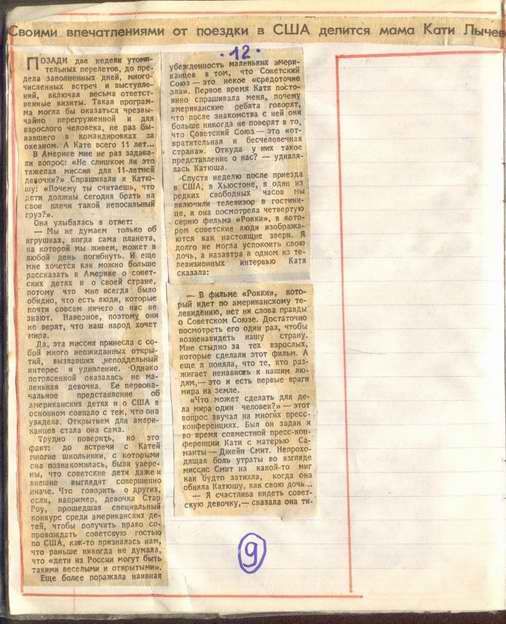 Своими впечатлениями от поездки в США делится мама Кати Лычев
12
ПОЗАДИ две недели утоми-
тельных перелетов, до пре-
дела заполненных дней, много-
численных встреч и выступле-
ний, включая весьма ответст-
венные визиты. Такая програм-
ма могла бы оказаться чрезвы-
чайно перегруженной и для
взрослого человека, не раз бы-
вавшего в командировках за
океаном. А Кате всего 11 лет...
В Америке мне не раз задава-
ли вопрос: «Не слишком ли это
тяжелая миссия для 11-летней
девочки?» Спрашивали и Катю-
шу: «Почему ты считаешь, что
дети должны сегодня брать на
свои плечи такой непосильный
груз?».
Она улыбалась в ответ:
— Мы не думаем только об
игрушках, когда сама планета,
на которой мы живем, может в
любой день погибнуть. И еще
мне хочется как можно больше
рассказать в Америке о совет-
ских детях и о своей стране,
потому что мне всегда было
обидно, что есть люди, которые
почти совсем ничего о нас не
знают. Наверное, поэтому они
не верят, что наш народ хочет
мира.
Да, эта миссия принесла с со-
бой много неожиданных откры-
тий, вызвавших неподдельный
интерес и удивление. Однако
потрясенной оказалась не ма-
ленькая девочка. Ее первона-
чальное представление об
американских детях и о США в
основном совпало с тем, что она
увидела. Открытием для амери-
канцев стала она сама.
Трудно поверить, но это
факт: до встречи с Катей
многие школьники, с которыми
она познакомилась, были увере-
ны, что советские дети даже и
внешне выглядят совершенно
иначе. Что говорить о других,
если, например, девочка Стар
Роу, прошедшая специальный
конкурс среди американских де-
тей, чтобы получить право со-
провождать советскую гостью
по США, как-то призналась нам,
что раньше никогда не думала,
что «дети из России могут быть
такими веселыми и открытыми».
Еще более поражала наивная
убежденность маленьких амери-
канцев в том, что Советский
Союз — это некое «средоточие
зла». Первое время Катя посто-
янно спрашивала меня, почему
американские ребята говорят,
что после знакомства с ней они
больше никогда не поверят в то,
что Советский Союз — это «от-
вратительная и бесчеловечная
страна». Откуда у них такое
представление о нас? — удивля-
лась Катюша.
Спустя неделю после приезда
в США, в Хьюстоне, в один из
редких свободных часов мы
включили телевизор в гостини-
це, и она посмотрела четвертую
серию фильма «Рокки», в кото-
ром советские люди изобража-
ются как настоящие звери. Я
долго не могла успокоить свою
дочь, а назавтра в одном из те-
левизионных интервью Катя
сказала:
— В фильме «Рокки», кото-
рый идет по американскому те-
левидению, нет ни слова правды
о Советском Союзе. Достаточно
посмотреть его один раз, чтобы
возненавидеть нашу страну.
Мне стыдно за тех взрослых,
которые сделали этот фильм. А
еще я поняла, что те, кто раз-
жигает ненависть к нашим лю-
дям,— это и есть первые враги
мира на земле.
«Что может сделать для де-
ла мира один человек?» — этот
вопрос звучал на многих пресс-
конференциях. Был он задан и
во время совместной пресс-кон-
ференции Кати с матерью Са-
манты — Джейн Смит. Непрохо-
дящая боль утраты во взгляде
миссис Смит на какой-то миг
как будто затихла, когда она
обняла Катюшу, как свою дочь...
— Я счастлива видеть совет-
скую девочку,— сказала она ти-
9